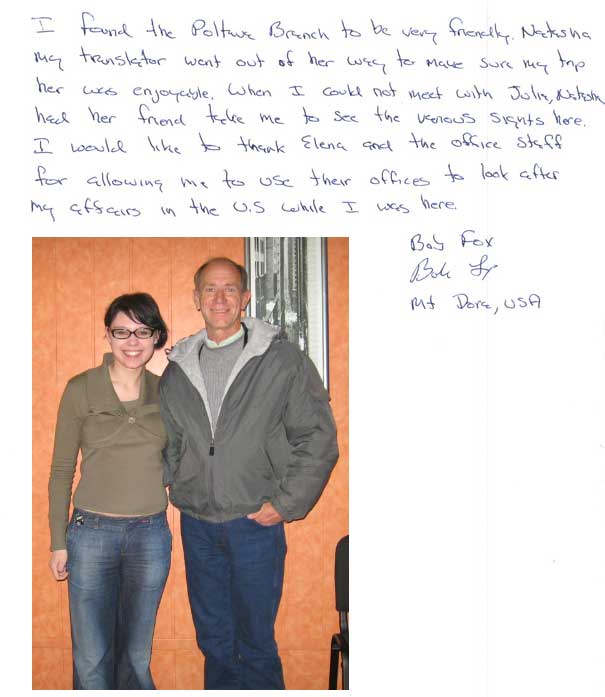 I found the Poltava Branch to be very friendly. Natasha
my translator went out of her way to make sure my trip
her was enjoyable. When I could not meet with Julia, Natasha
had her friend take me to see the various sights here.
I would like to thank Elena and the office staff
for allowing me to use their offices to look after
my affairs in the U.S while I was here.
Bob Fox
Bob Fx
Mt Dora, USA